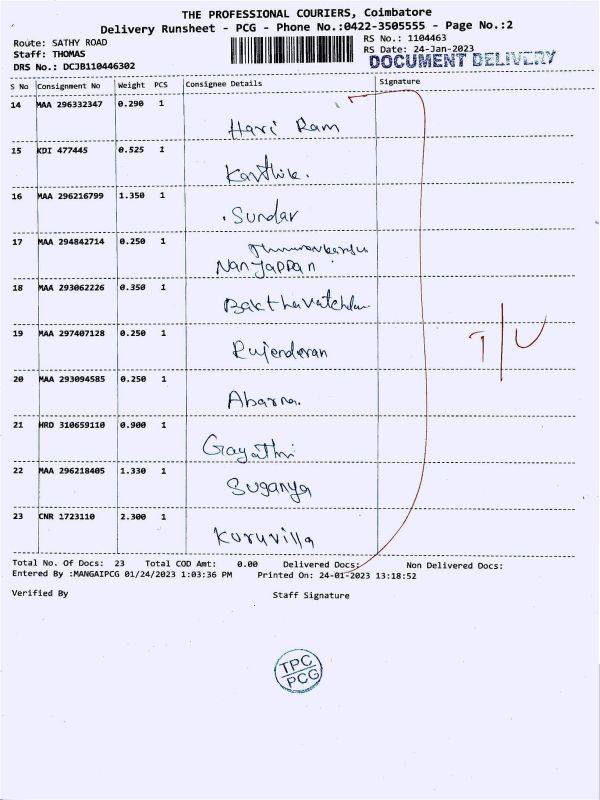 THE PROFESSIONAL COURIERS, Coimbatore
Delivery Runsheet - PCG - Phone No.:0422-3505555 - Page No.:2
Route: SATHY ROAD
RS No.: 1104463
Staff: THOMAS
RS Date: 24-Jan-2023
DRS No.: DCJB110446302
DOCUMENT DELIVERY
S No Consignment No Weight PCS Consignee Details Signature
14 MAA 296332347 0.290 1
Hari Ram
15 KDI 477445 0.525 1
Karthik.
16 MAA 296216799 1.350 1
. Sundar
17 MAA 294842714 0.250 1
Nanjappan
18 MAA 293062226 0.350 1
19 MAA 297407128 0.250 1
Rujenderan
20 MAA 293094585 0.250 1
Abarna.
21 HRD 310659110 0.900 1
Gayathri
22 MAA 296218405 1.330 1
Suganya
23 CNR 1723110 2.300 1
Kuruvilla
T/U
Total No. Of Docs: 23 Total COD Amt: 0.00 Delivered Docs: Non Delivered Docs:
Entered By :MANGAIPCG 01/24/2023 1:03:36 PM Printed On: 24-01-2023 13:18:52
Verified By Staff Signature
TPC
PCG